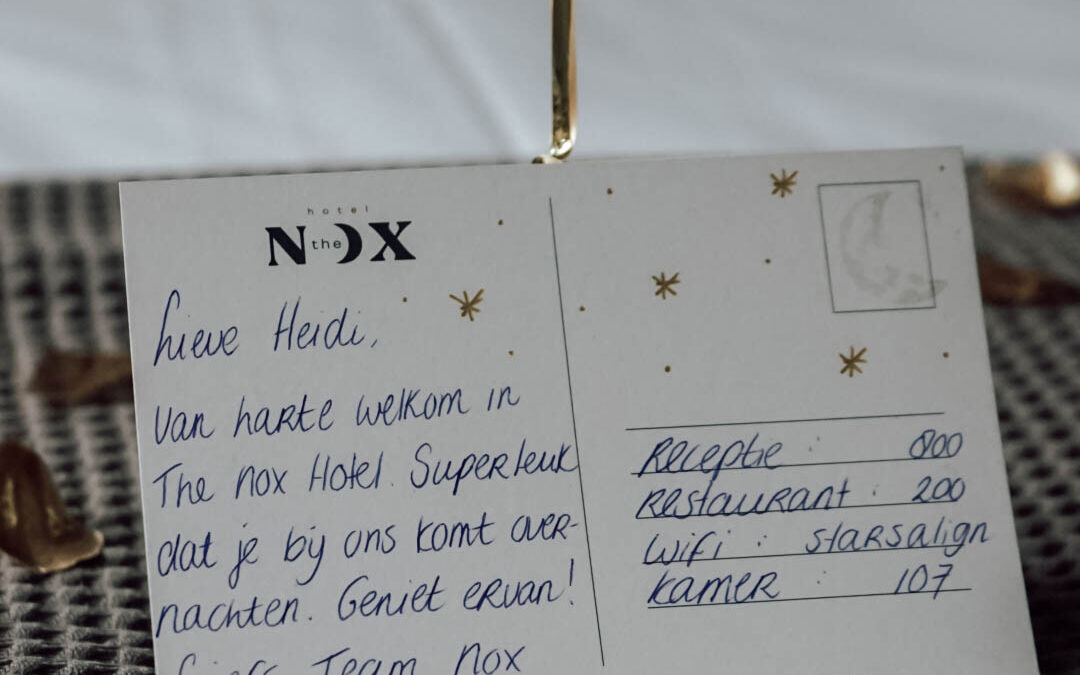 hotel
NOX
the
Lieve Heidi,
Van harte welkom in
The nox Hotel. Superleuk
dat je bij ons komt over-
nachten. Geniet ervan!
Liefs Team nox
Receptie :
Restaurant : 200
Wifi : starsalign
Kamer : 107